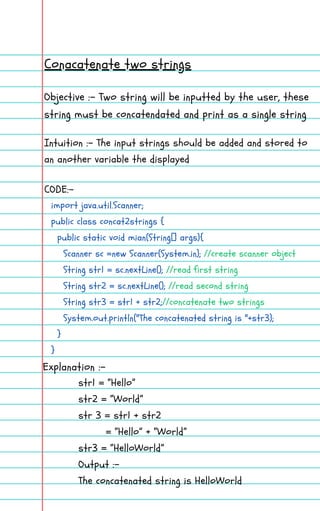 Conacatenate two strings
Objective :- Two string will be inputted by the user, these
string must be concatendated and print as a single string
Intuition :- The input strings should be added and stored to
an another variable the displayed
CODE:-
import java.util.Scanner;
public class concat2strings {
public static void mian(String[] args){
Scanner sc =new Scanner(System.in); //create scanner object
String str1 = sc.nextLine(); //read first string
String str2 = sc.nextLine(); //read second string
String str3 = str1 + str2;//concatenate two strings
System.out.println("The concatenated string is "+str3);
}
}
Explanation :-
str1 = "Hello"
str2 = "World"
str 3 = str1 + str2
= "Hello" + "World"
str3 = "HelloWorld"
Output :-
The concatenated string is HelloWorld